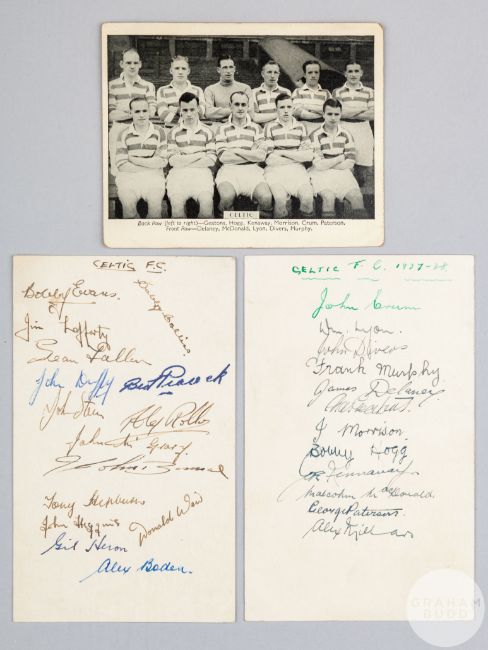 CELTIC
Back Row (left to right)—Geatons, Hogg, Kenaway, Morrison, Crum, Paterson.
Front Row—Delaney, McDonald, Lyon, Divers, Murphy.
CELTIC F.C.
Bobby Evans.
Charlie
Jim Lafferty
Sean Fallon
John Duffy
Bert Peacock
John Stein
Alex Rollo
John McGrory
John
Tony Hepburn
John Higgins
Donald Weir
Gil Heron
Alex Boden.
CELTIC F. C. 1937-38.
John Crum
Wm. Lyon.
John Divers
Frank Murphy
James Delaney
J. Morrison.
Bobby Hogg
Malcolm MacDonald
George Paterson
Alex
GRAHAM
BUDD